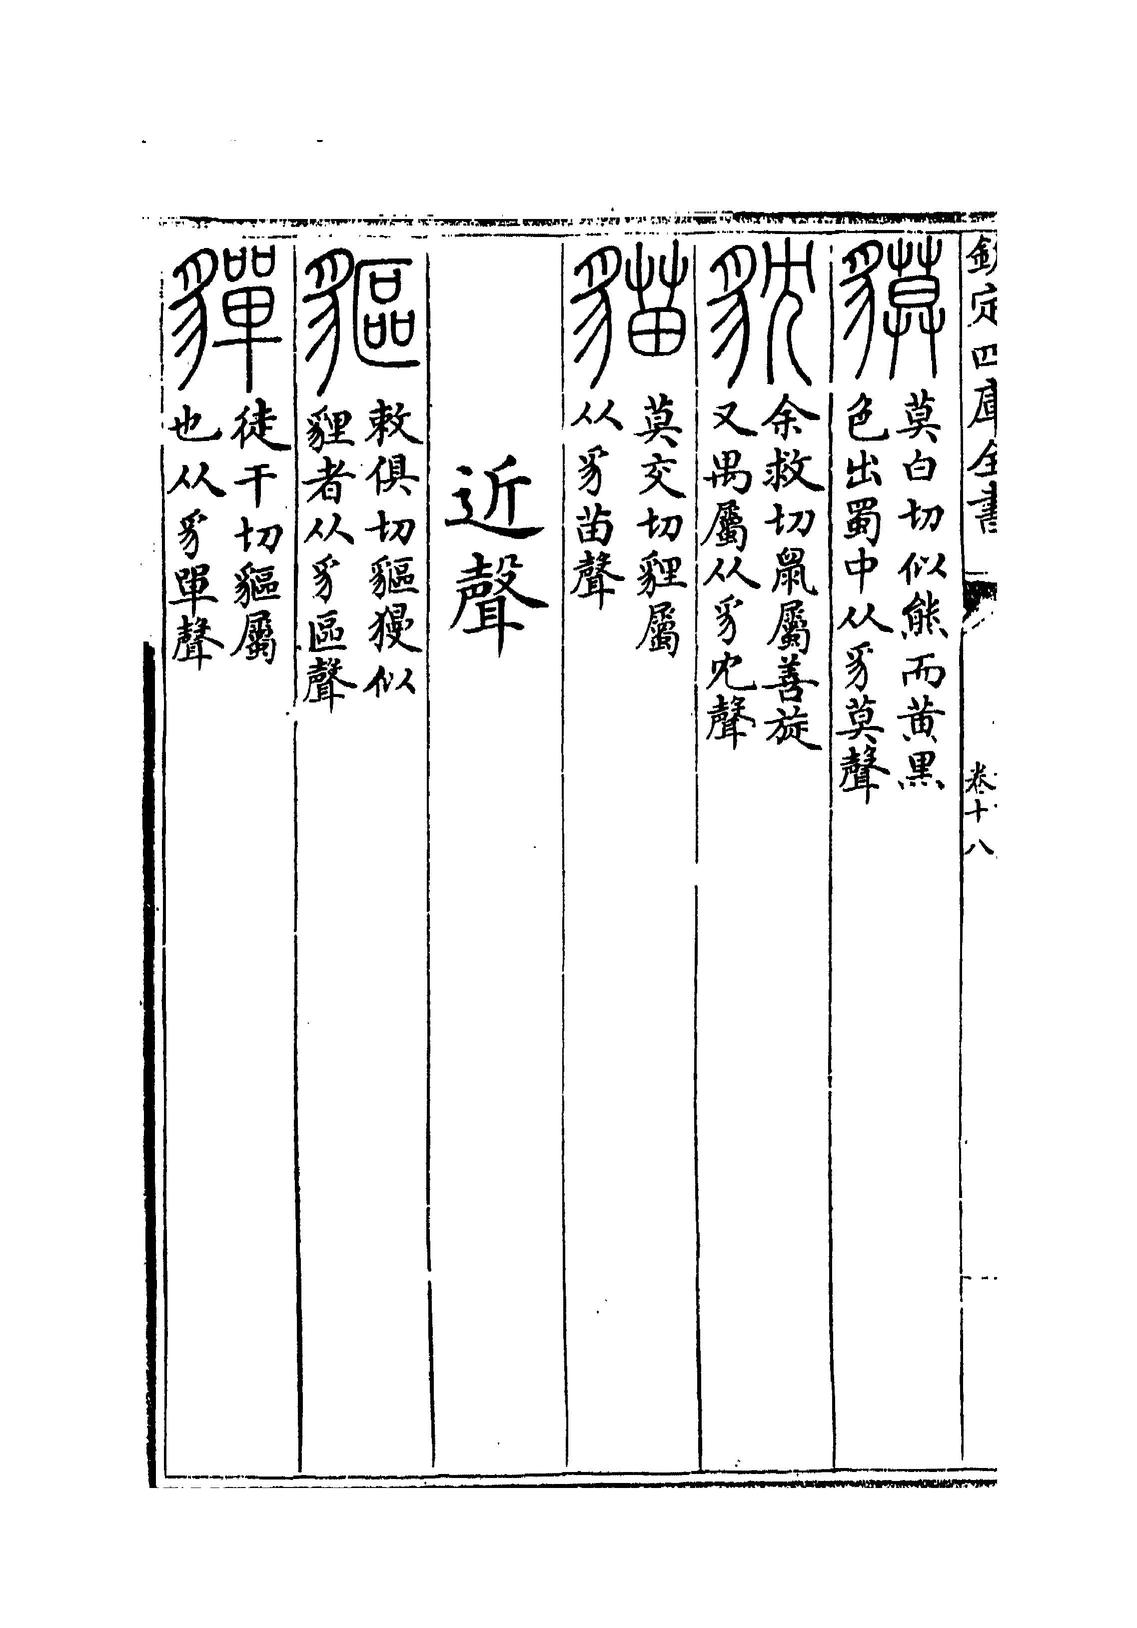 欽定四庫全書 卷十八
貘 莫白切似熊而黄黒
色出蜀中从豸莫聲
余救切鼠屬善旋
又禺屬从豸冘聲
貓 莫交切貍屬
从豸苗聲
近聲
貙 敕俱切貙獌似
貍者从豸區聲
貚 徒干切貙屬
也从豸單聲